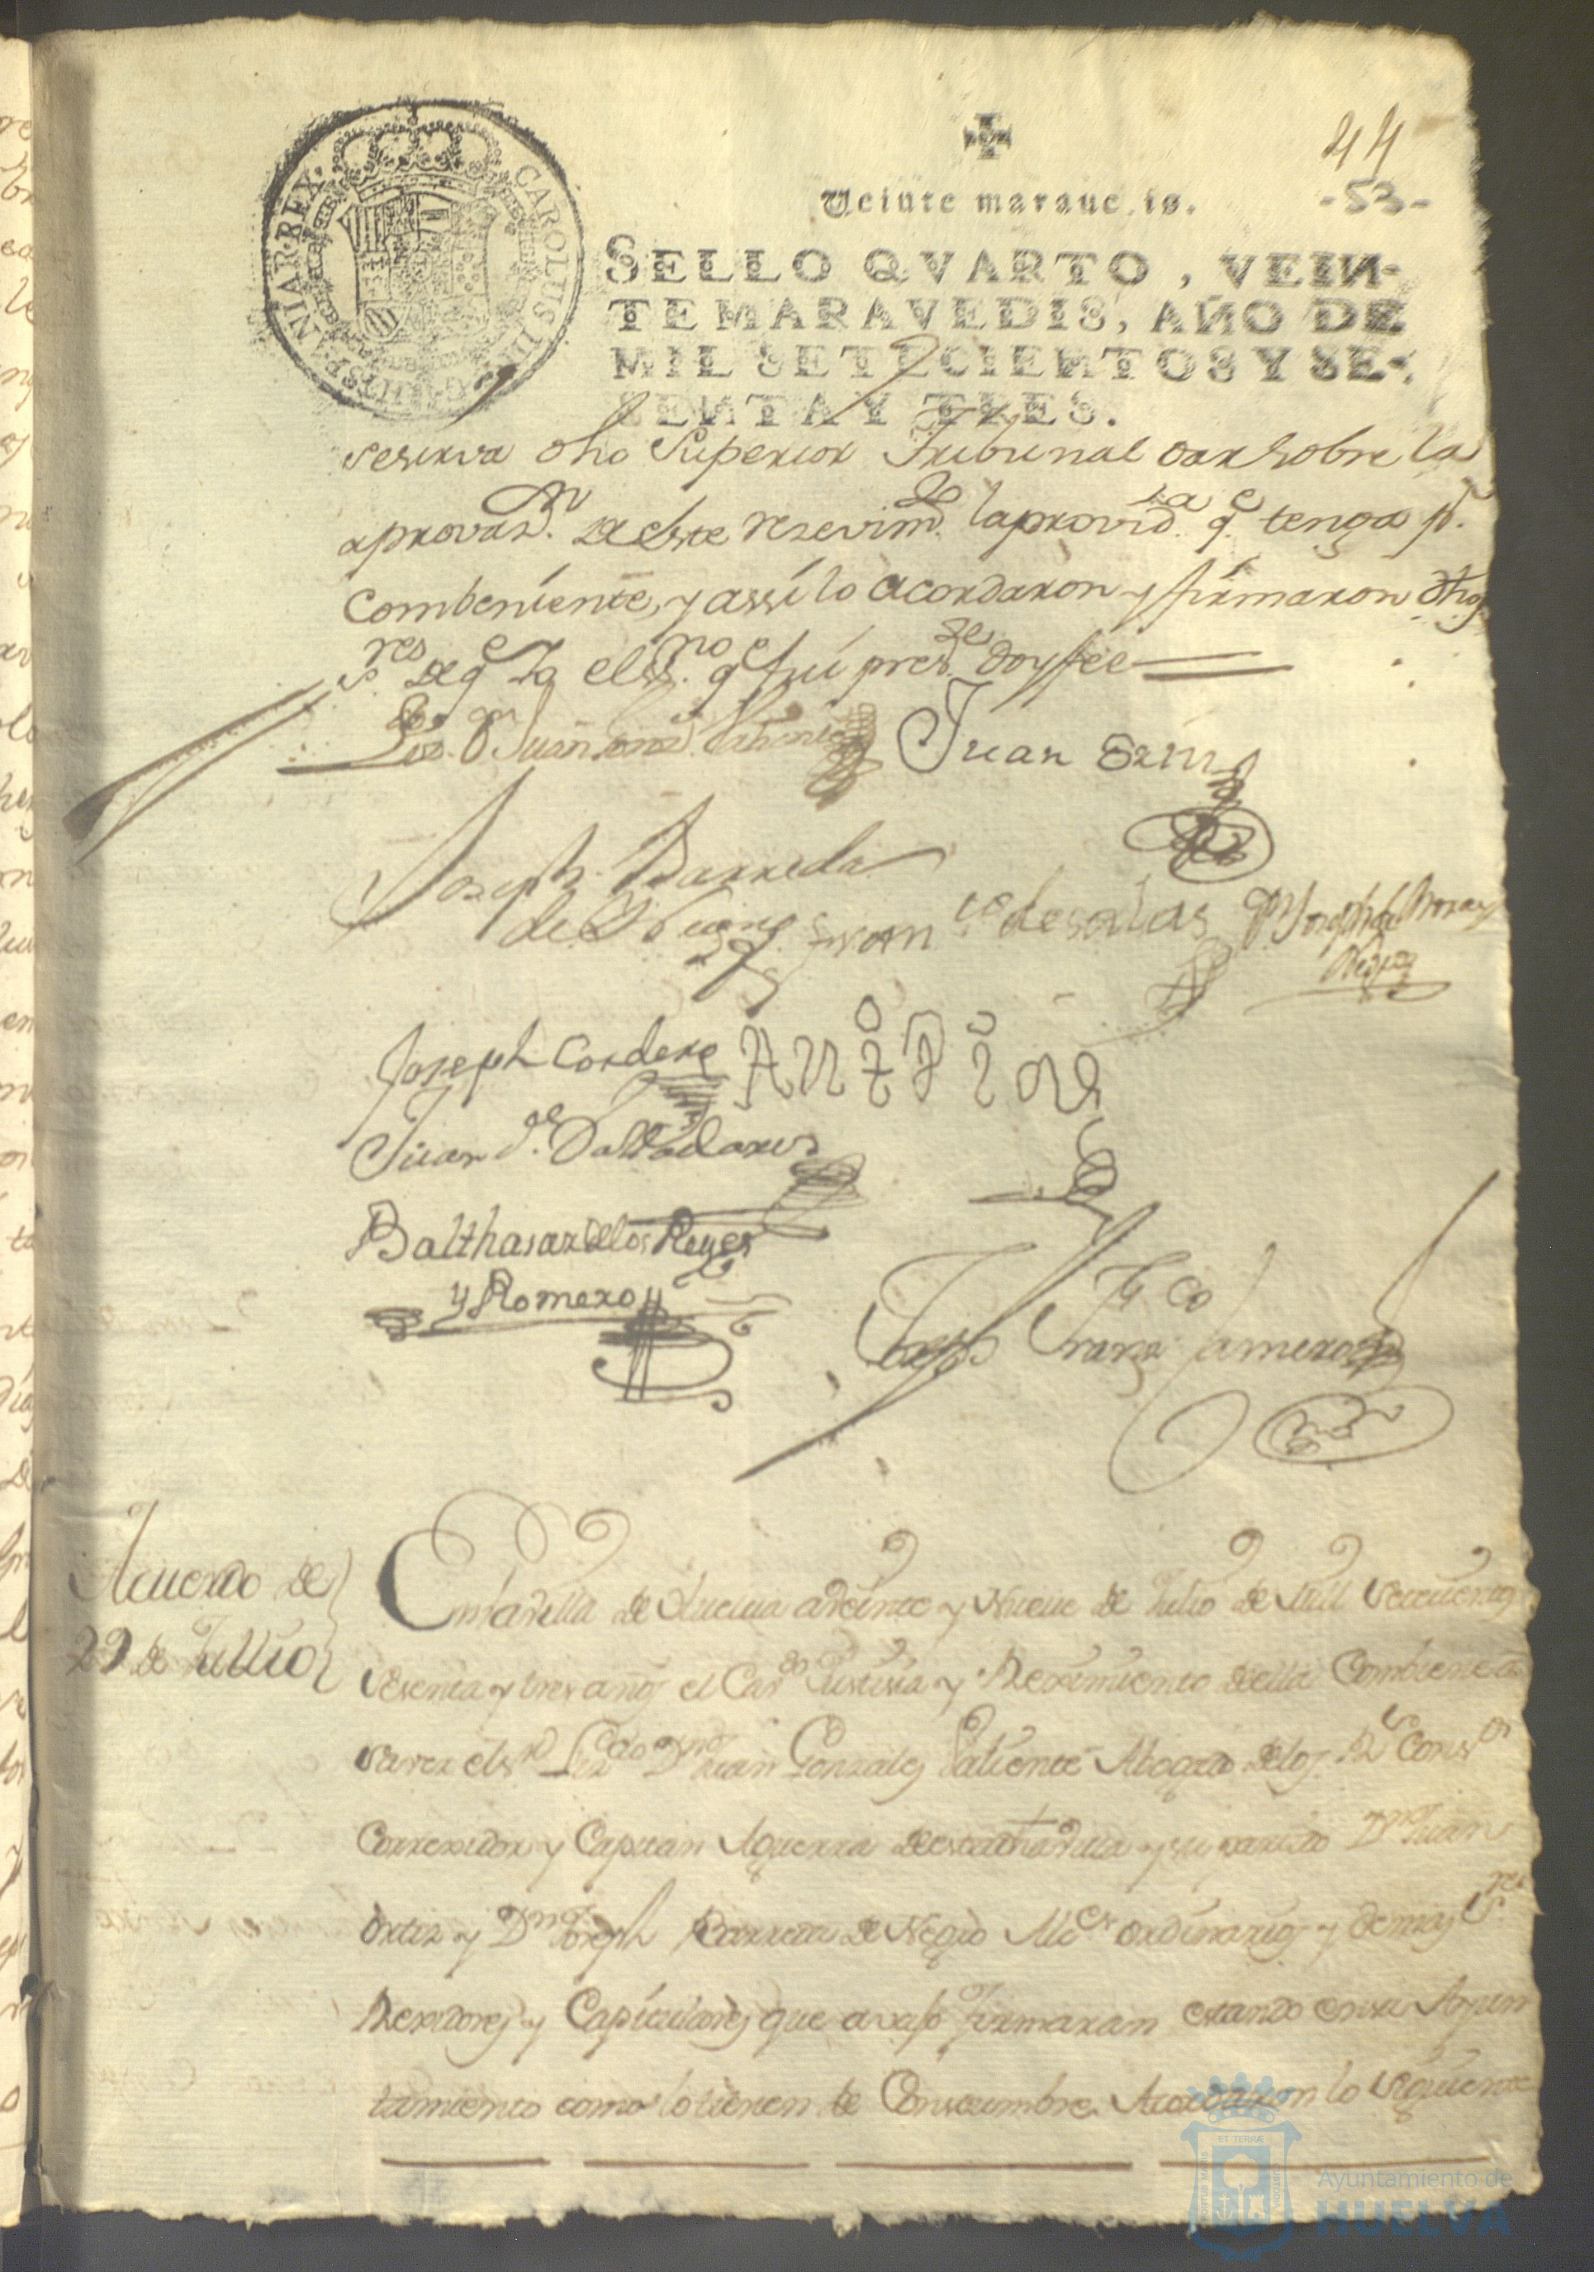 44
Veinte marauedis.
-53-
CAROLUS III D G HISPANIAR. REX.
SELLO QVARTO, VEIN-
TE MARAVEDIS, AÑO DE
MIL SETECIENTOS Y SE-
SENTA Y TRES.
reserva dho Superior Tribunal dar sobre la
aprovaz.on de este rezevim.to la provid.a q.e tenga p.r
Combeniente, y assi lo acordaron y firmaron dhos
s.res de q.e Yo el ess.no q.e fui pres.te doy fee
Liz.do D.n Juan Gonz. Patiente
Juan Ortiz
Joseph Barreda
Fran.co de salas
D.n Joseph de
Joseph Cordero
Antonio
Juan d.e Valladares
Balthasar de los Reyes
y Romero
Joseph Franz.co
Acuerdo de
29 de Jullio
En la villa de Huelva a veinte y Nueve de Julio de Mill setecientos
sesenta y tres años el Cav.do Justisia y Reximiento de ella Combiene a
saver el s.r Liz.do D.n Juan Gonzales Patiente Abogado de los R.s Cons.os
Correxidor y Capitan Aguerra de esta dha villa y su partido D.n Juan
Ortiz y D.n Joseph Barreda de Alc.es ordinarios y demas S.res
Rexidores y Capitulares que avajo firmaran estando en su Ayun
tamiento como lo tienen de Constumbre Acordaron lo siguiente
Ayuntamiento de
HUELVA